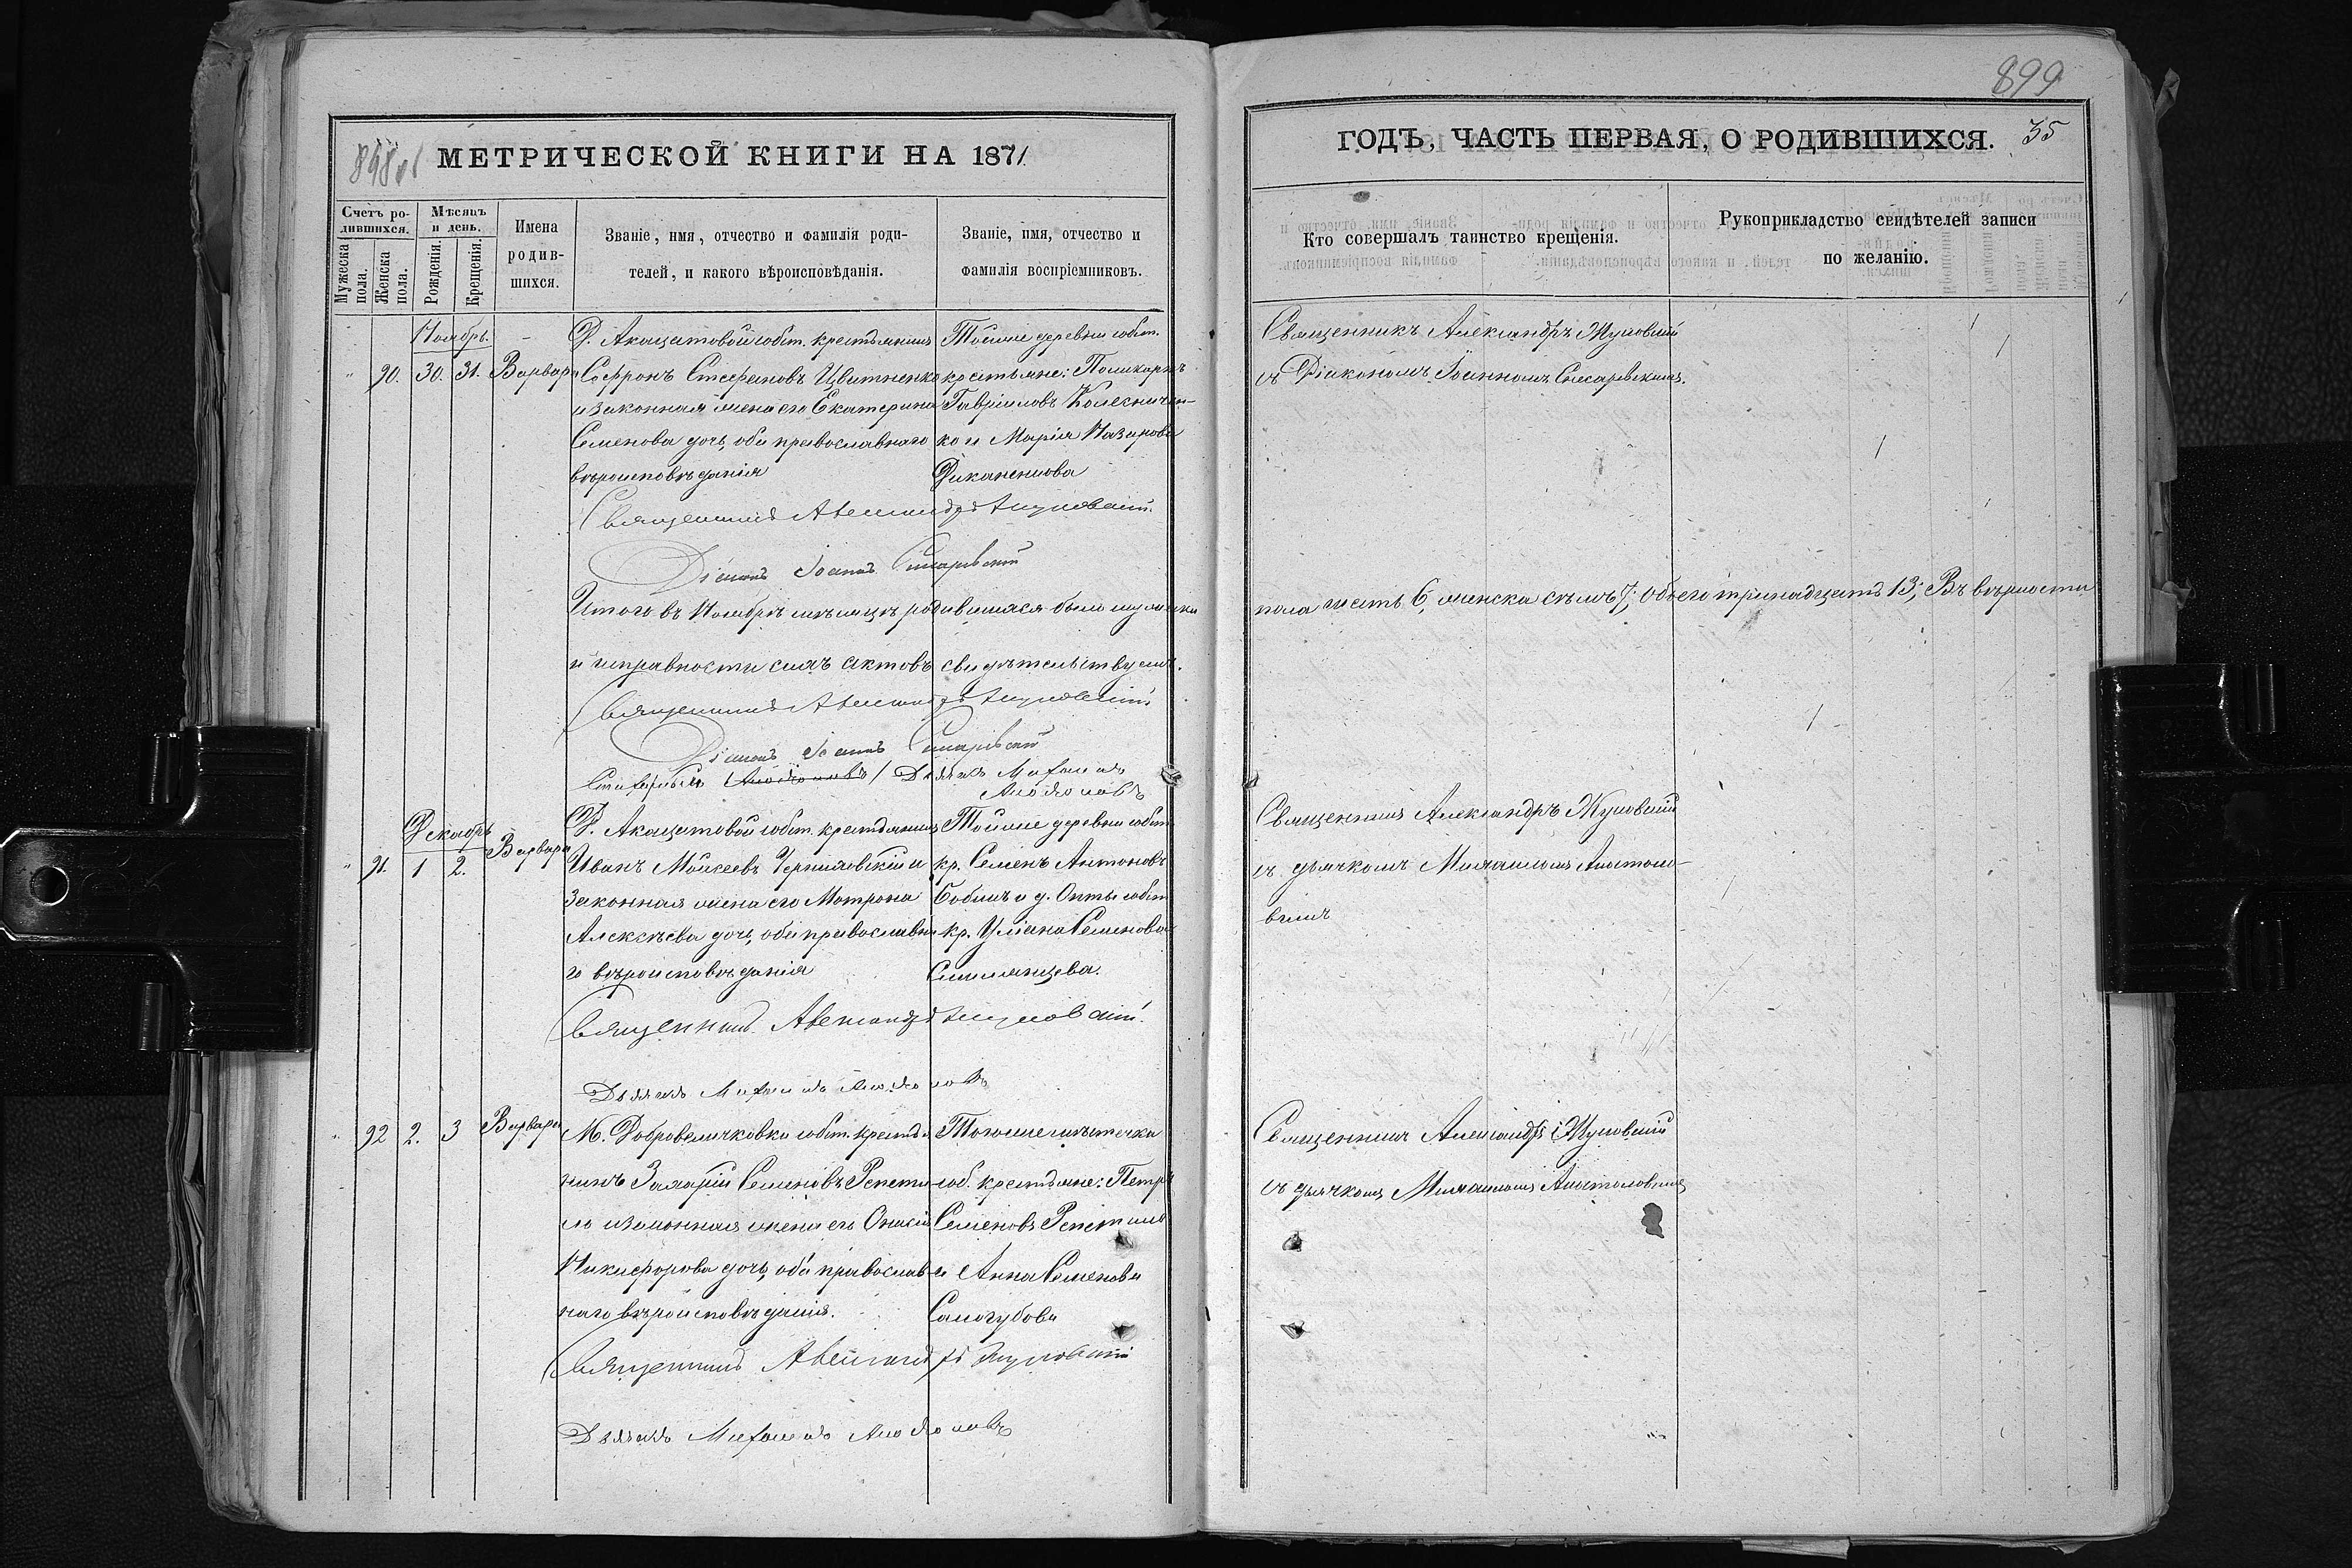 899
898об МЕТРИЧЕСКОЙ КНИГИ НА 1871
ГОДЪ, ЧАСТЬ ПЕРВАЯ, О РОДИВШИХСЯ. 35
Счетъ ро-
дившихся.
Мужеска пола.
Женска пола.
Мѣсяцъ
и день.
Рожденія.
Крещенія.
Имена
родив-
шихся.
Званіе, имя, отчество и фамилія роди-
телей, и какого вѣроисповѣданія.
Званіе, имя, отчество и
фамилія воспріемниковъ.
Кто совершалъ таинство крещенія.
Рукоприкладство свидѣтелей записи
по желанію.
Ноябрь.
" 90. 30. 31. Варвара
Д. Акацатовой собст. крестьянинъ
Софронъ Стефановъ Цвитненко
и законная жена его Екатерина
Семенова дочь, оба православнаго
вѣроисповѣданія
Тойже деревни собст.
крестьяне: Поликарпъ
Гавріиловъ Колесничен-
ко и Марія Назарова
Диканенкова
Священникъ Александръ Жуковскій
съ Діакономъ Іоанномъ
Священникъ Александръ Жуковскій
Діаконъ Іоаннъ
Итого въ Ноябрѣ мѣсяцѣ родившихся было мужеска
пола шесть 6, женска семь 7; обоего тринадцать 13; Въ вѣрности
и исправности сихъ актовъ свидѣтельствуемъ.
Священникъ Александръ Жуковскій
Діаконъ Іоаннъ
Дьячекъ Михаилъ
Декабрь
" 91. 1 2. Варвара
Д. Акацатовой собст. крестьянинъ
Иванъ Мойсеевъ Чернявскій и
законная жена его Мотрона
Алексѣева дочь, оба православна
го вѣроисповѣданія
Тойже деревни собст
кр. Семенъ Антоновъ
Бобликъ и д. Опты собст
кр. Уліана Семенова
Священникъ Александръ Жуковскій
съ дьячкомъ Михаиломъ Апостоло-
вымъ
Священникъ Александръ Жуковскій.
Дьячекъ Михаилъ
" 92 2. 3 Варвара
М. Добровеличковки собст. крестья
нинъ Захарій Семеновъ Репети
ло и законная жена его Онисія
Никифорова дочь, оба православ
наго вѣроисповѣданія.
Тогоже мѣстечка
соб. крестьяне: Петръ
Семеновъ Репетило
и Анна Семенова
Самогубова
Священникъ Александръ Жуковскій
съ дьячкомъ Михаиломъ Апостоловымъ
Священникъ Александръ Жуковскій
Дьячекъ Михаилъ